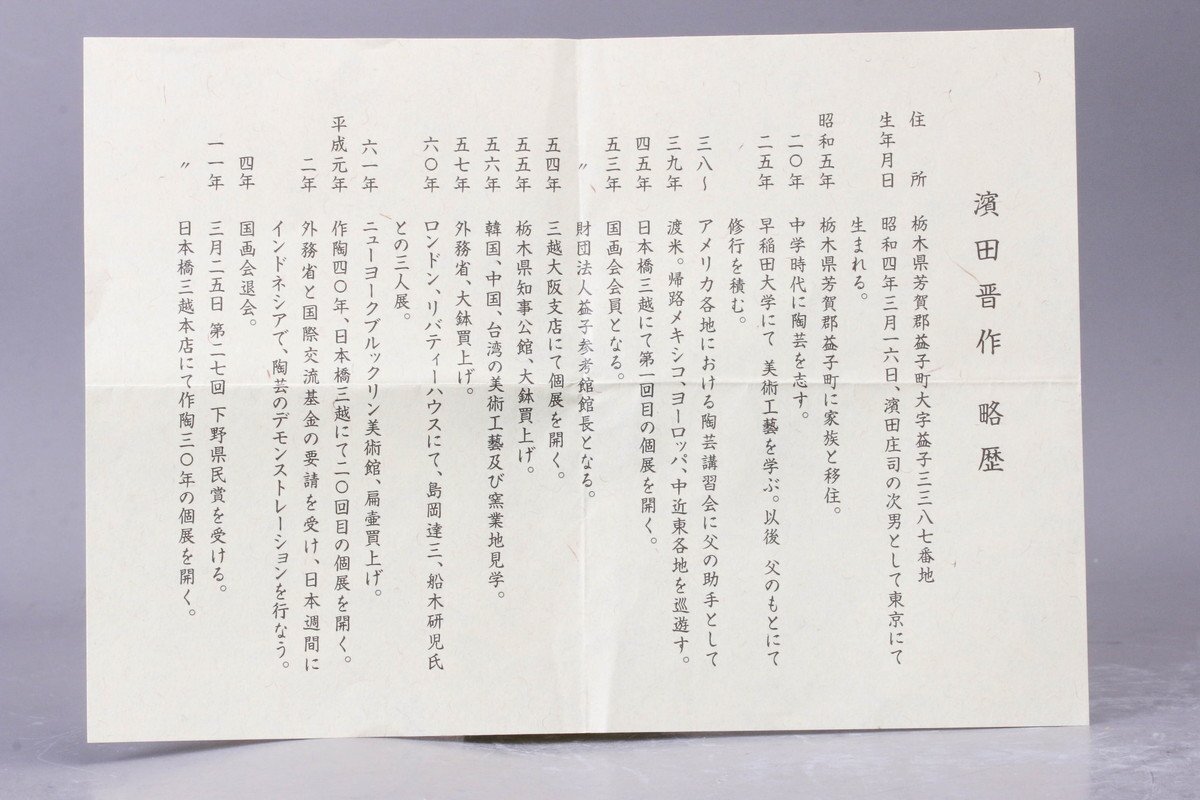 濱田晋作 略歴
住所 栃木県芳賀郡益子町大字益子三三八七番地
生年月日 昭和四年三月一六日、濱田庄司の次男として東京にて
生まれる。
昭和五年 栃木県芳賀郡益子町に家族と移住。
二〇年 中学時代に陶芸を志す。
二五年 早稲田大学にて 美術工藝を学ぶ。以後 父のもとにて
修行を積む。
三八〜 アメリカ各地における陶芸講習会に父の助手として
三九年 渡米。帰路メキシコ、ヨーロッパ、中近東各地を巡遊す。
四五年 日本橋三越にて第一回目の個展を開く。
五三年 国画会会員となる。
〃 財団法人益子参考館館長となる。
五四年 三越大阪支店にて個展を開く。
五五年 栃木県知事公館、大鉢買上げ。
五六年 韓国、中国、台湾の美術工藝及び窯業地見学。
五七年 外務省、大鉢買上げ。
六〇年 ロンドン、リバティーハウスにて、島岡達三、船木研児氏
との三人展。
六一年 ニューヨークブルックリン美術館、扁壷買上げ。
平成元年 作陶四〇年、日本橋三越にて二〇回目の個展を開く。
二年 外務省と国際交流基金の要請を受け、日本週間に
インドネシアで、陶芸のデモンストレーションを行なう。
四年 国画会退会。
一一年 三月二五日 第二七回 下野県民賞を受ける。
〃 日本橋三越本店にて作陶三〇年の個展を開く。